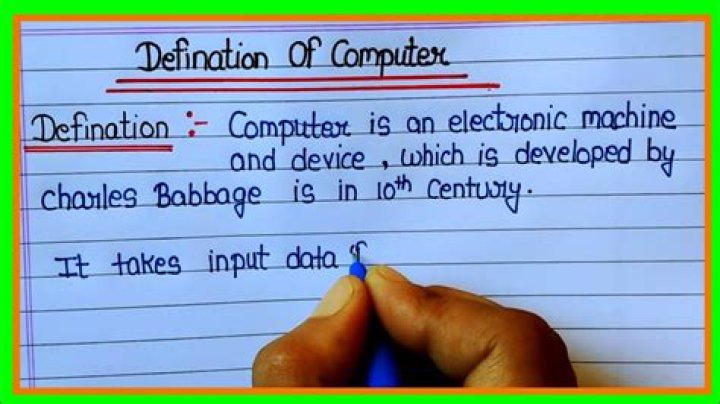 Defination Of Computer
Defination :- Computer is an electronic machine
and device, which is developed by
Charles Babbage is in 10th Century.
It takes input data